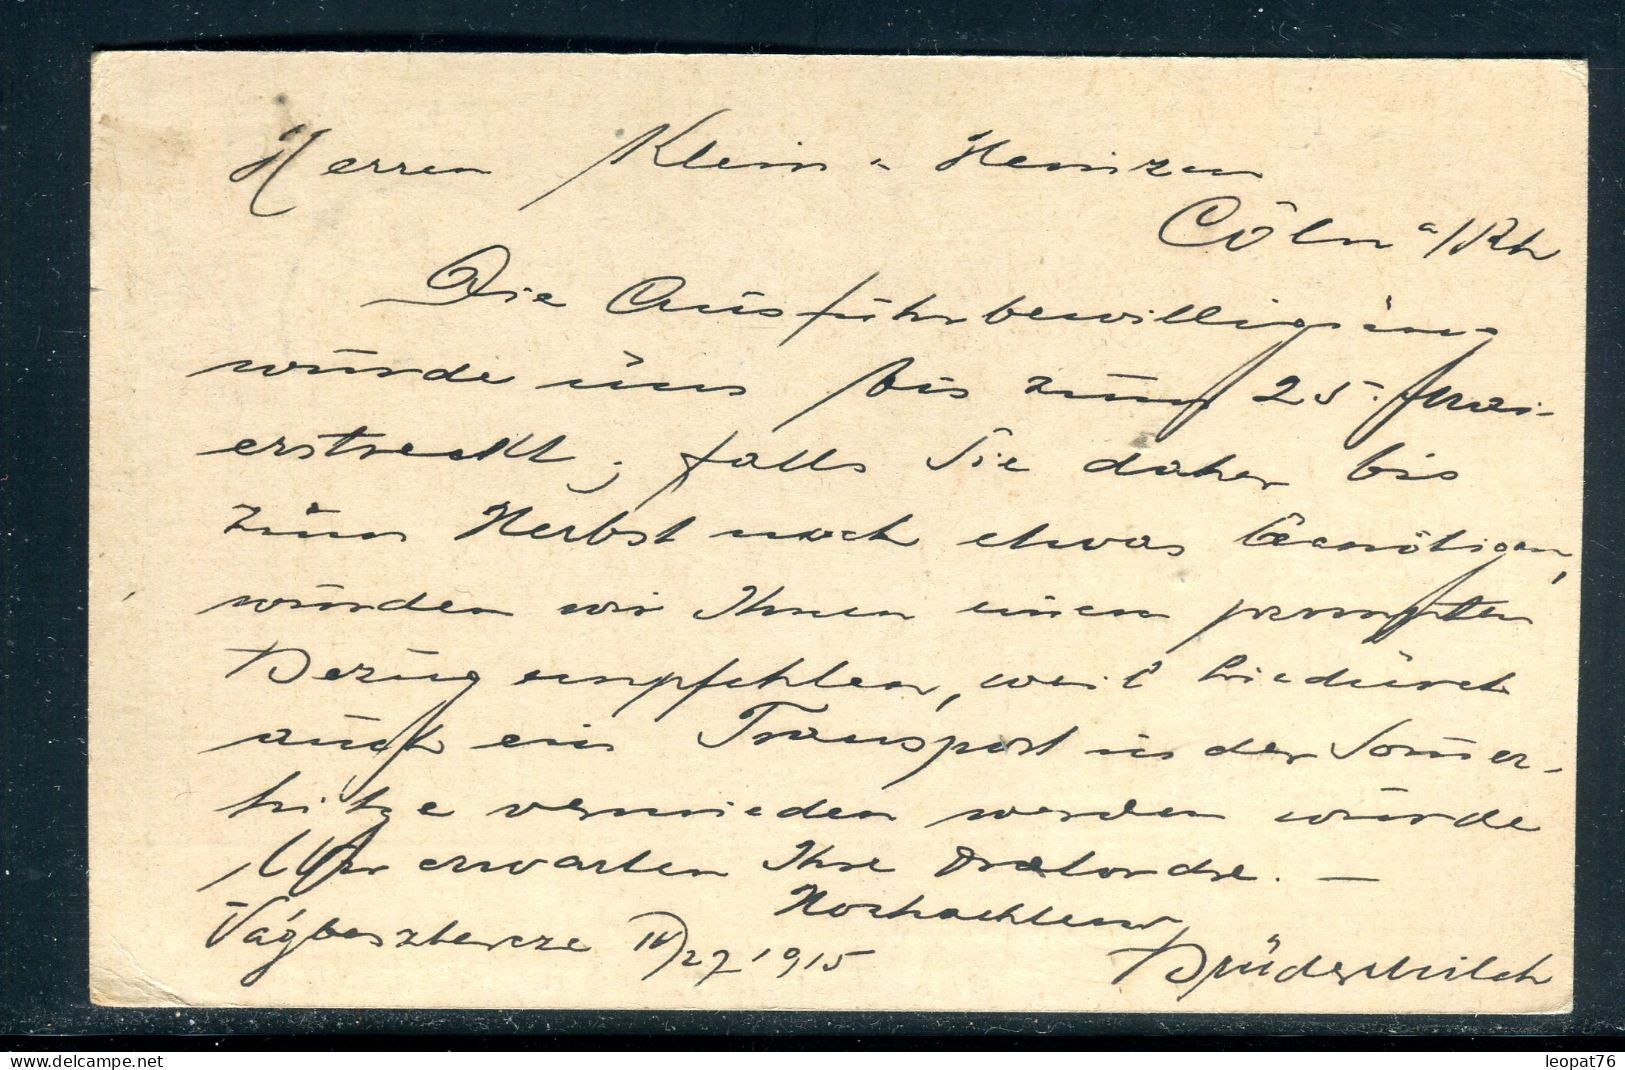 Herren Klein u Heinizen
Cöln a/Rh
Die Ausfuhrbewilligung
wurde uns bis zum 25. Mai
erstreckt; falls Sie daher bis
zum Herbst noch etwas benötigen,
würden wir Ihnen einen prompten
Bezug empfehlen, weil hiedurch
auch ein Transport in der Somer-
hitze vermieden werden würde
Wir erwarten Ihre Dratordre. —
Hochachtend
Vágbeszterce IV/27 1915
Brüder Milch
www.delcampe.net
leopat76